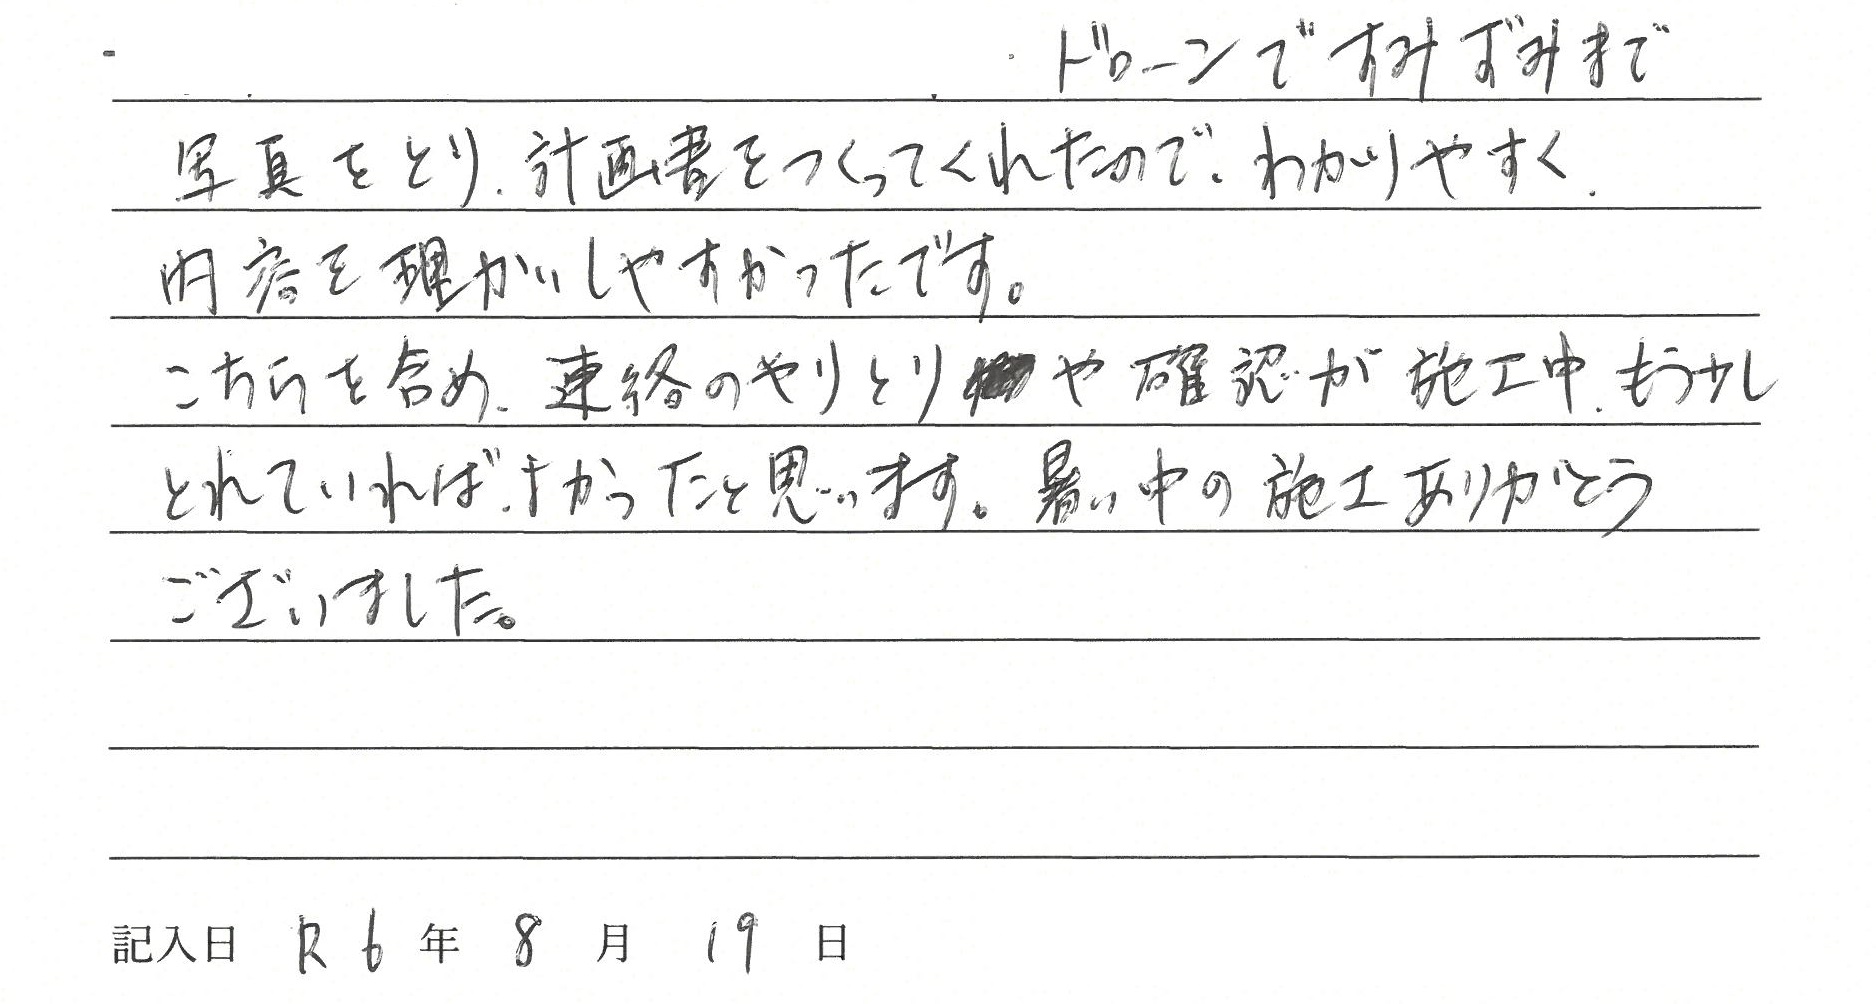 ドローンですみずみまで
写真をとり、計画書をつくってくれたので、わかりやすく、
内容を理かいしやすかったです。
こちらを含め、連絡のやりとりや確認が施工中、もう少し
とれていればよかったと思います。暑い中の施工ありがとう
ございました。
記入日 R6年8月19日